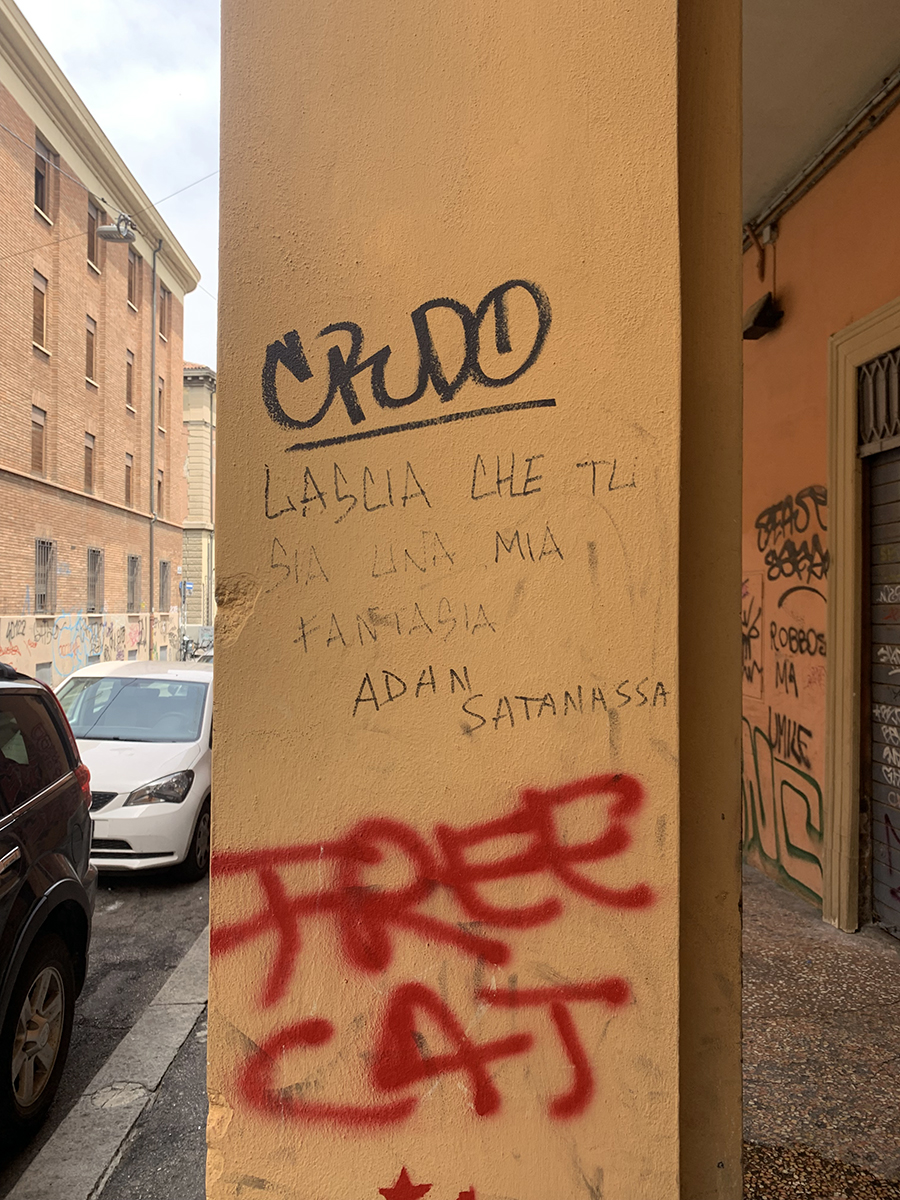 CRUDO
LASCIA CHE TU
SIA UNA MIA
FANTASIA
ADAN
SATANASSA
FREE
CAT
ROBBOS
MA
UMILE